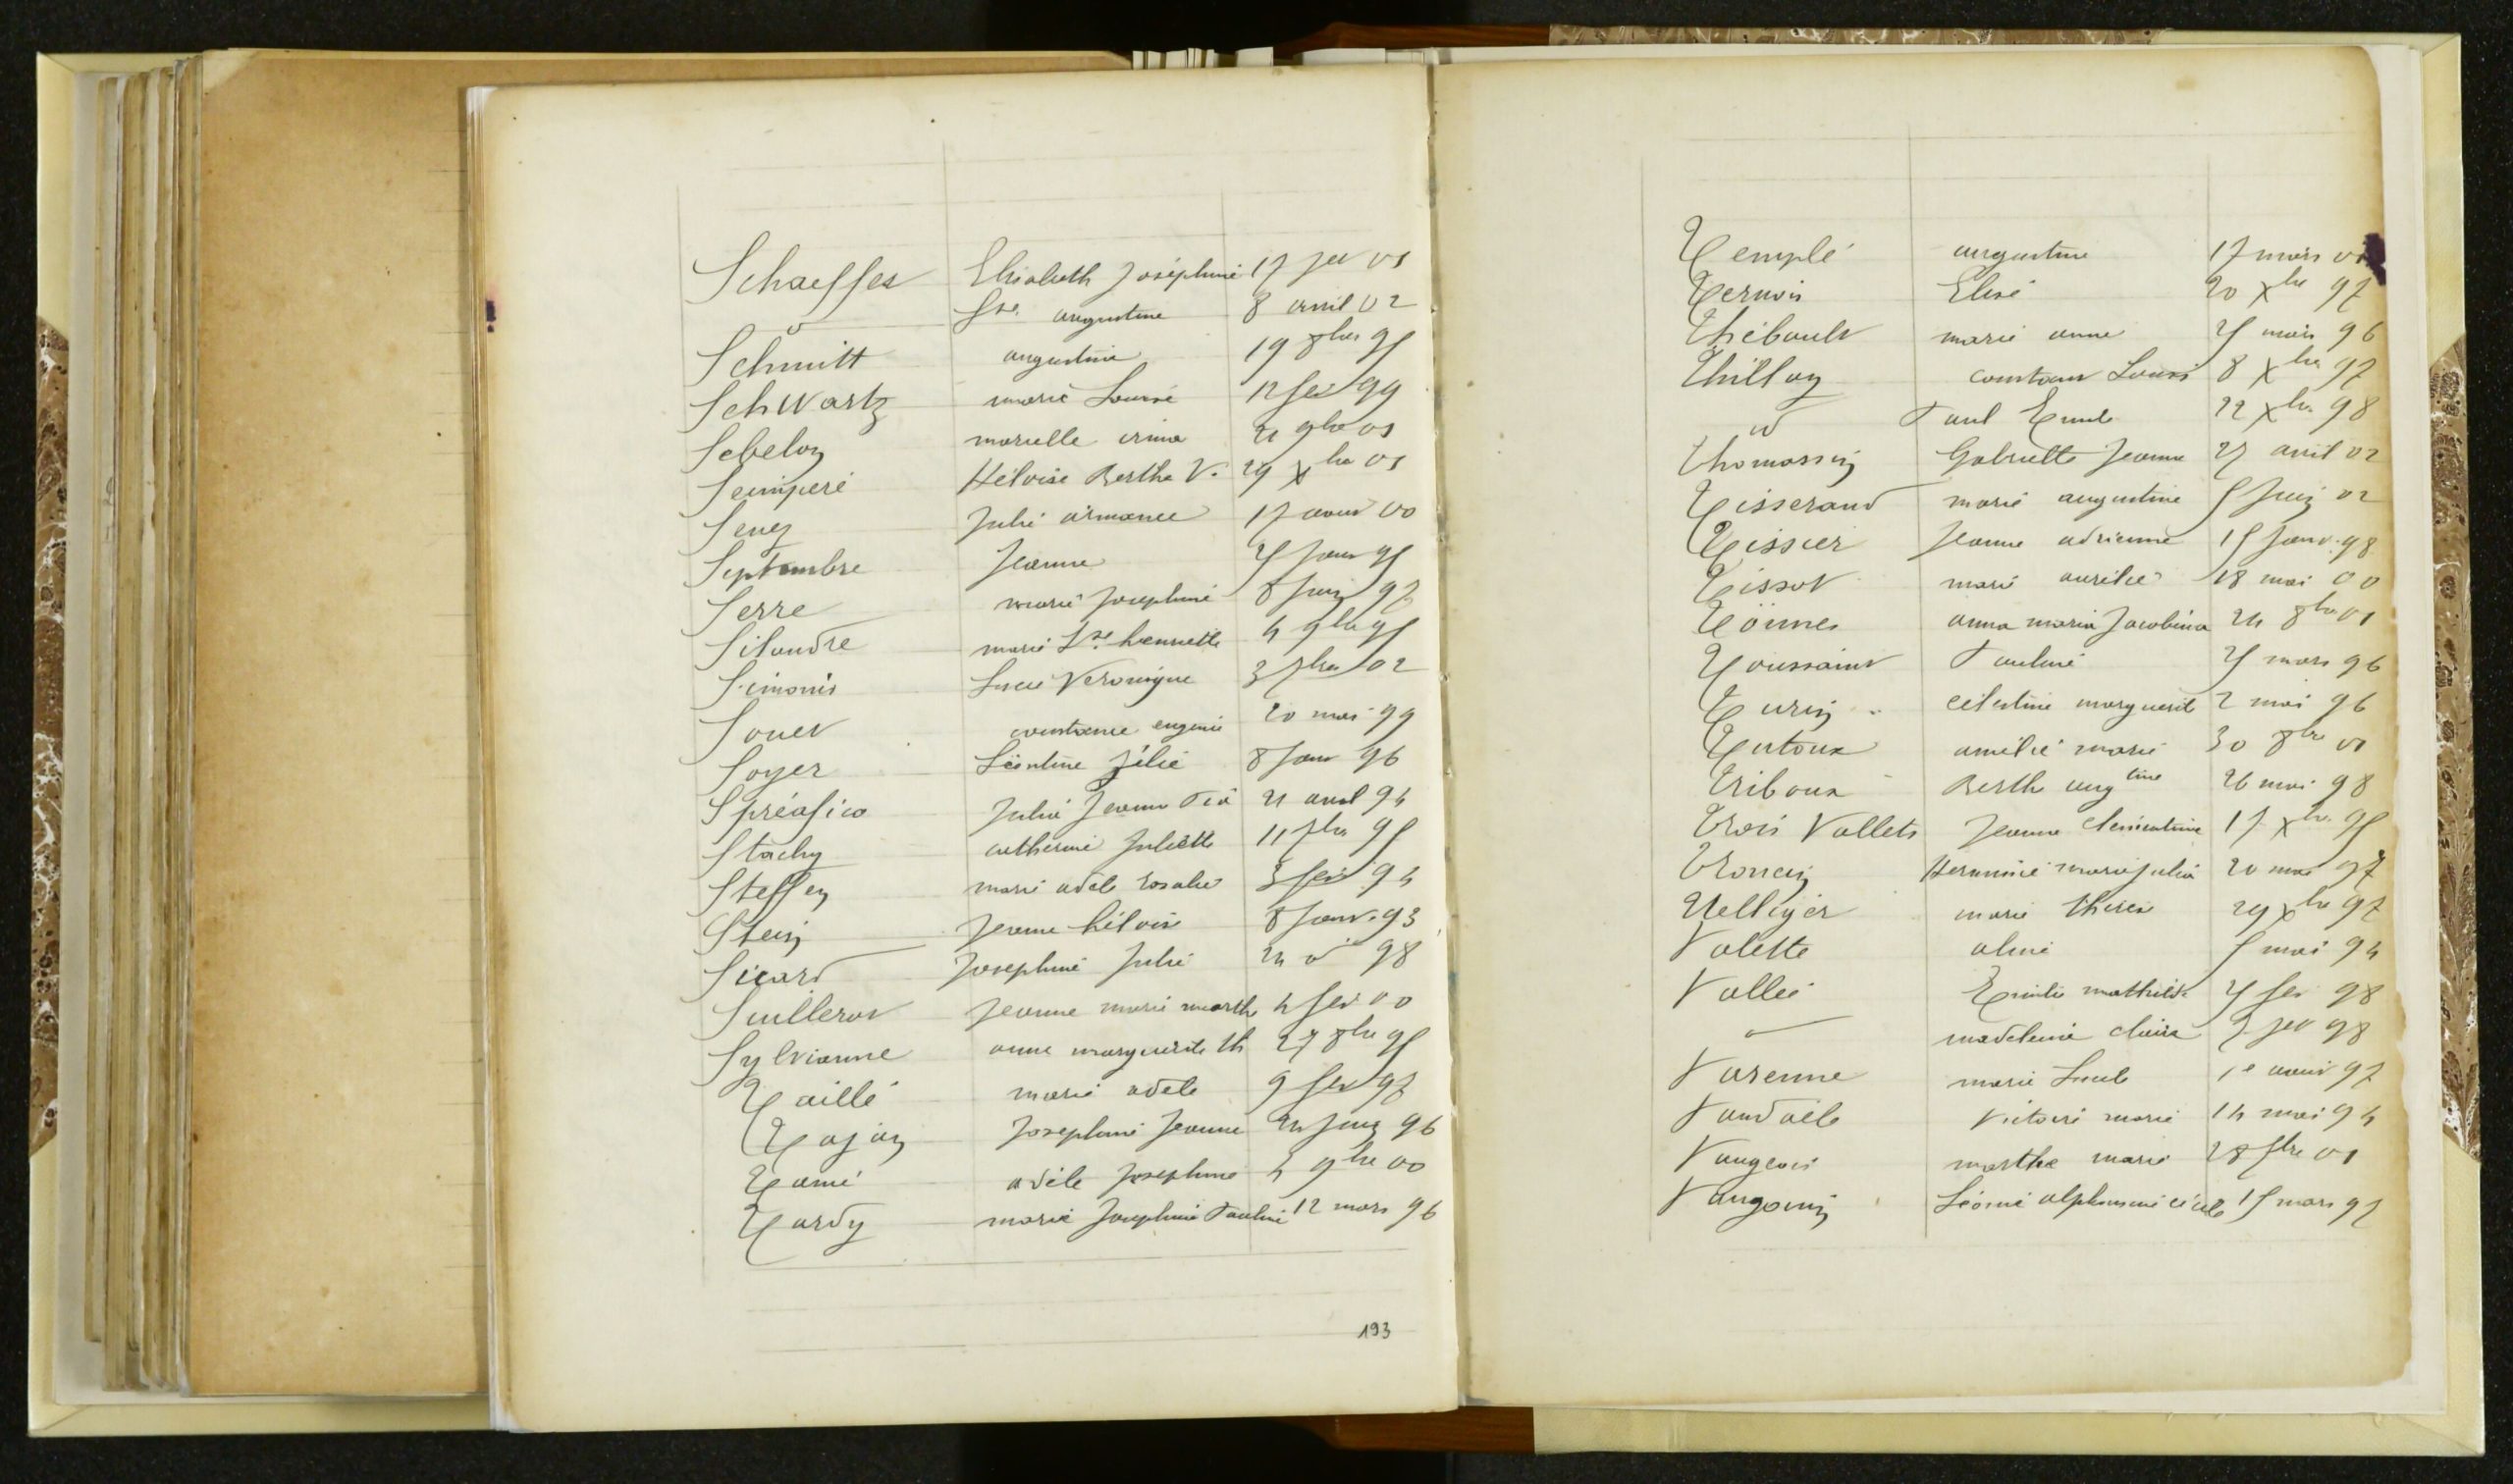 Schaeffer Elisabeth Joséphine 17 fev 01
d° Jne. augustine 8 avril 02
Schmitt augustine 19 8bre 95
Schwartz marie Louise 12 fev 99
Sebelon marielle irma 21 9bre 01
Semperé Héloïse Berthe V. 29 Xbre 01
Senez Julie armance 17 aout 00
Septembre Jeanne 25 Janv 95
Serre marie Josephine 8 Juin 97
Silandre marie Lse henriette 4 9bre 95
Simonis Lucie Veronique 3 7bre 02
Souet constance eugenie 20 mai 99
Soyer Léontine Zélie 8 Janv 96
Spréafico Julia Jeanne Pia 21 avril 94
Stachy catherine Juliette 11 7bre 95
Steffen marie adele rosalie 3 fev 94
Stein Jeanne héloise 8 Janv. 93
Sicard Josephine Julie 24 d° 98
Suillerot Jeanne marie marthe 4 fev 00
Sylvianne anne marguerite th 27 8bre 95
Taillé marie adele 9 fev 97
Tajan Josephine Jeanne 24 Juin 96
Tamé adèle Josephine 4 9bre 00
Tardy marie Josephine Pauline 12 mars 96
193
Templé augustine 17 mars 01
Ternois Elise 20 Xbre 97
Thébault marie anne 25 mars 96
Thilloy constant Louis 8 Xbre 97
d° Paul Emile 22 Xbre 98
Thomassin Gabrielle Jeanne 27 avril 02
Tisserand marie augustine 5 Juin 02
Tissier Jeanne adrienne 15 Janv. 98
Tissot marie aurélie 18 mai 00
Tönnes anna maria Jacobina 24 8bre 01
Toussaint Pauline 25 mars 96
Turin celestine marguerite 2 mai 96
Tutoux amélie marie 30 8bre 01
Triboux Berthe augtine 26 mai 98
Trois Vallets Jeanne clementine 17 Xbre 95
Troncin Herminie marie julia 20 mai 97
Uelliger marie therese 29 Xbre 97
Valette aline 5 mai 94
Vallée Emilie mathilde 25 fev 98
d° madeleine claire 2 fev 98
Varenne marie Lucile 1e aout 97
Vandaële Victoire marie 14 mai 94
Vaugeois marthe marie 28 7bre 01
Vaugouin Léonie alphonsine cécile 15 mars 97